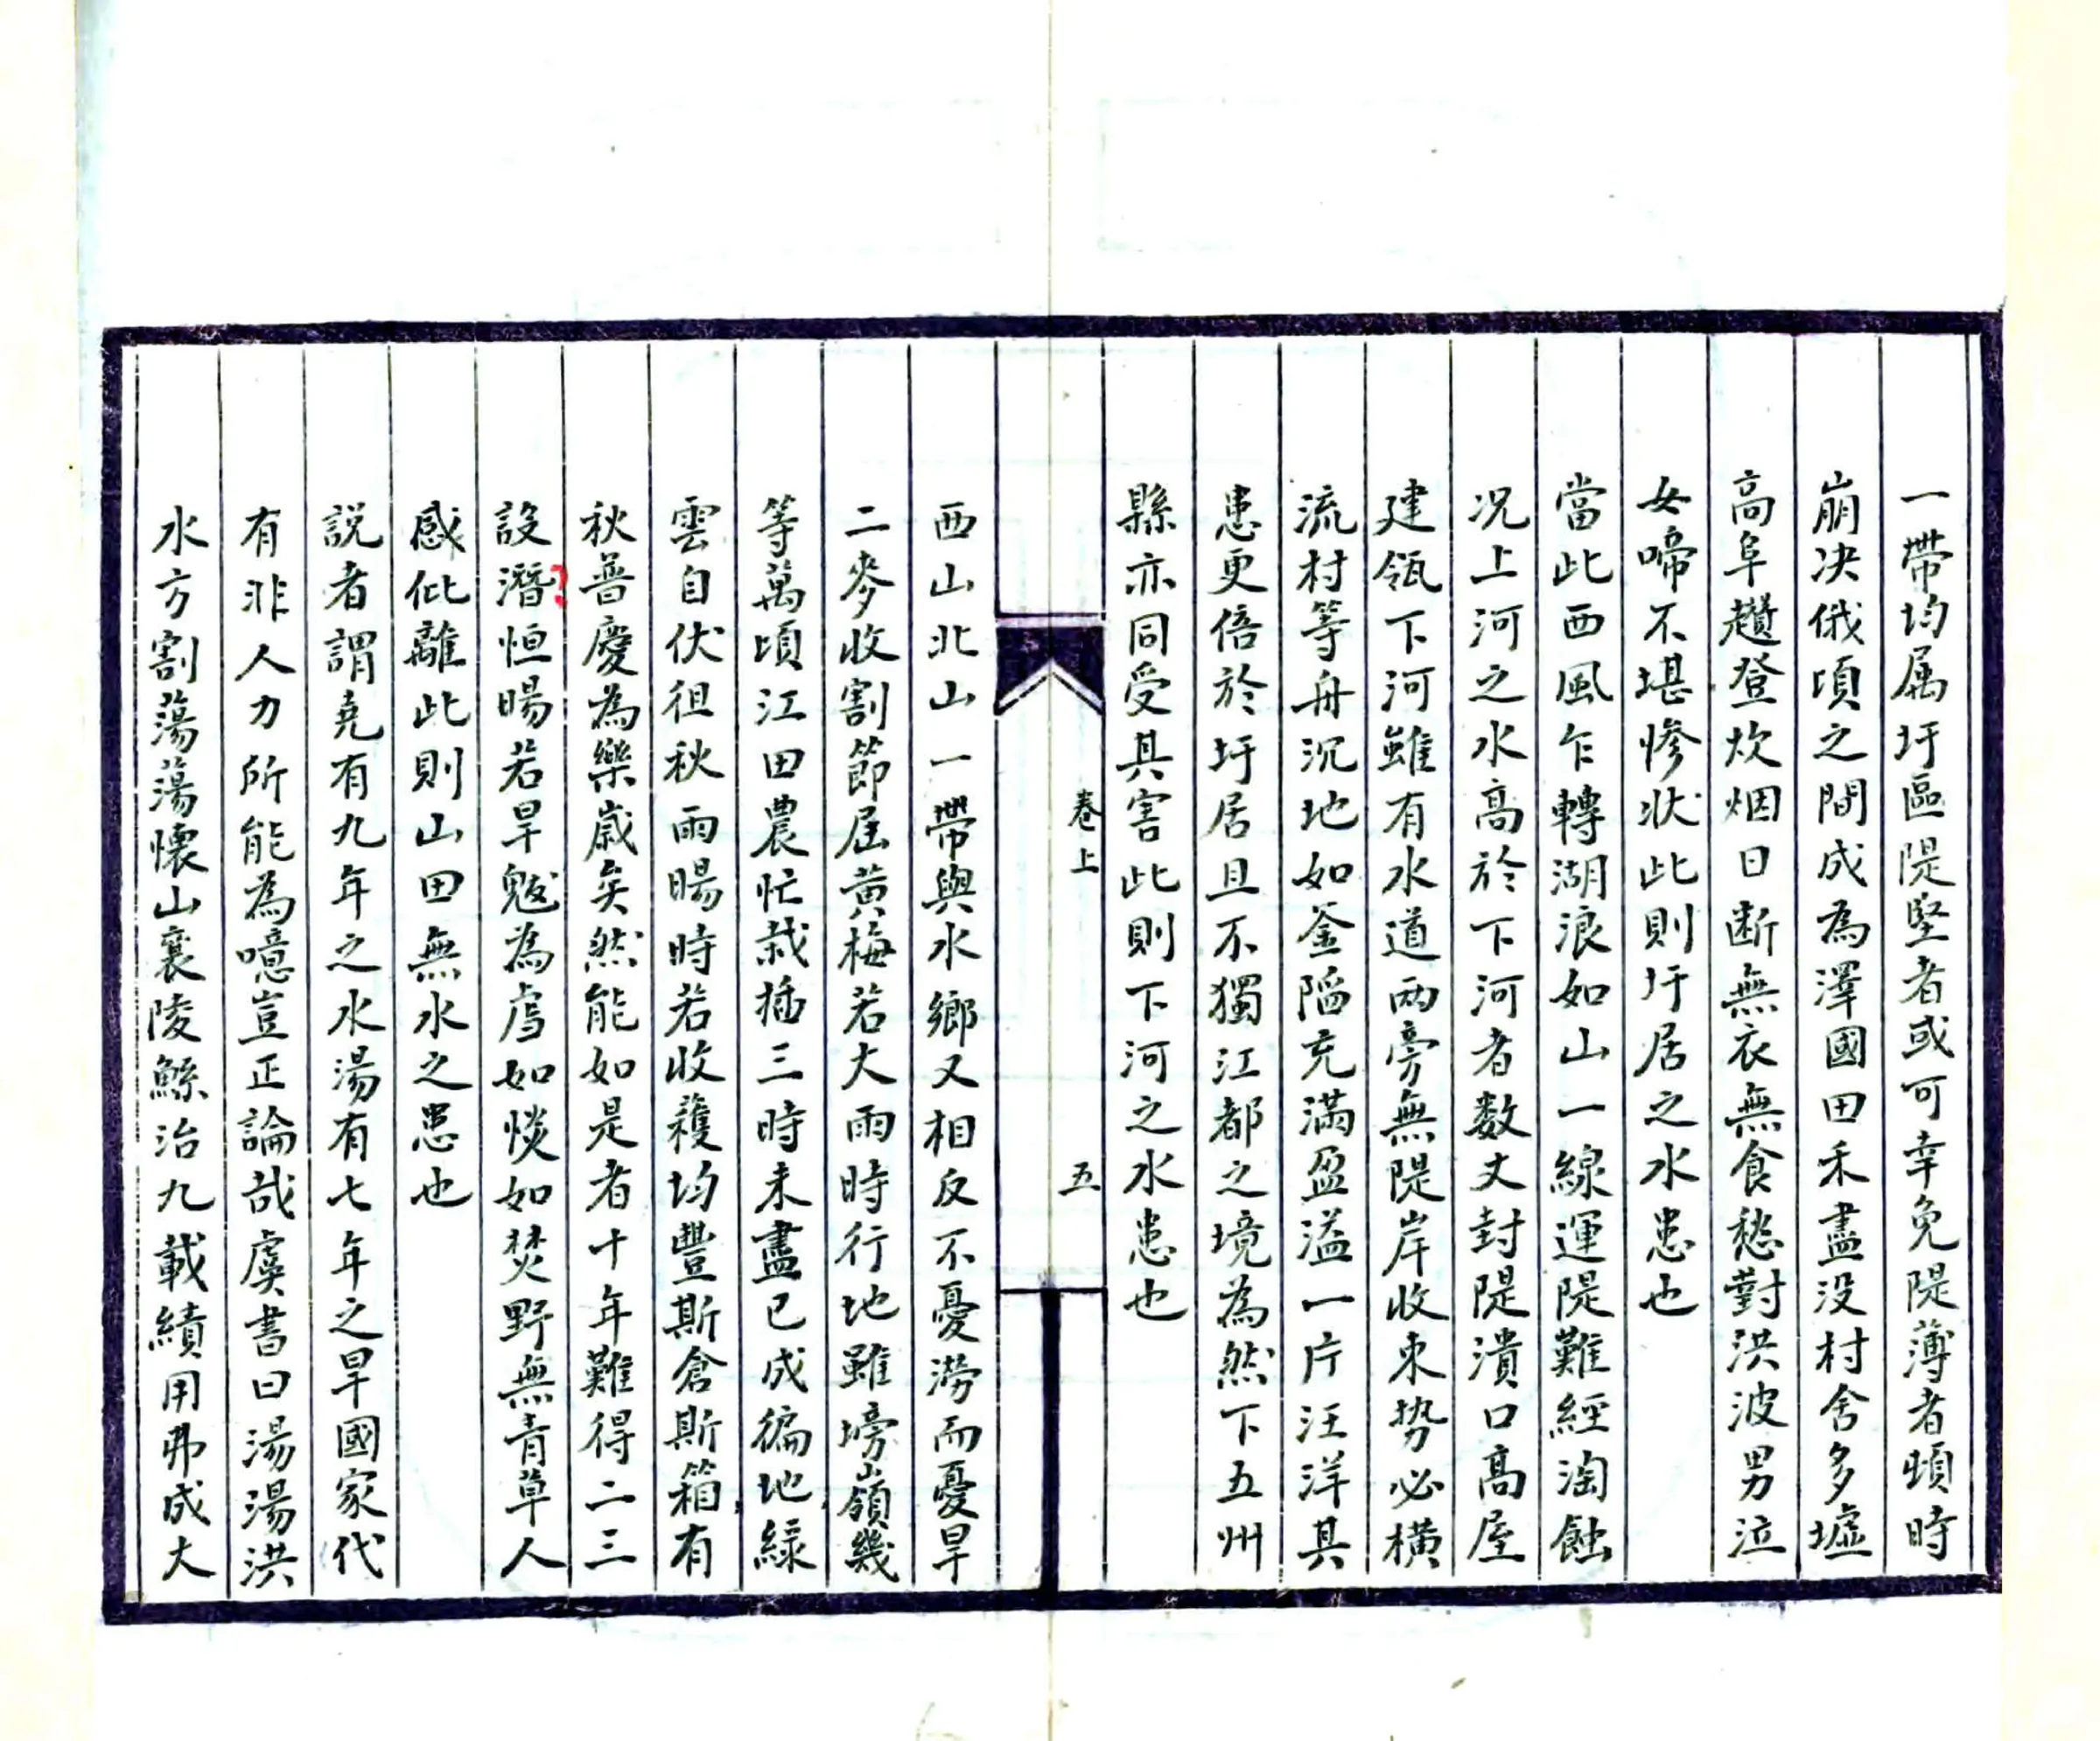 一帶均属圩區隄堅者或可幸免隄薄者頃時
崩决俄頃之間成為澤國田禾盡没村舍多墟
高阜趲登炊烟日断無衣無食愁對洪波男泣
女啼不堪慘状此則圩居之水患也
當此西風乍轉湖浪如山一線運隄難經淘蝕
况上河之水高於下河者数丈封隄潰口高屋
建瓴下河雖有水道兩旁無隄岸收束势必横
流村等舟沉地如釜陷充滿盈溢一片汪洋其
患更倍於圩居且不獨江都之境為然下五州
縣亦同受其害此則下河之水患也
卷上
五
西山北山一帶與水鄉又相反不憂澇而憂旱
二麥收割節屆黄梅若大雨時行地雖塝嶺幾
等萬頃江田農忙栽插三時未盡已成徧地緑
雲自伏徂秋雨暘時若收穫均豐斯倉斯箱有
秋普慶為樂歲矣然能如是者十年難得二三
設潛恒暘若旱魃為虐如惔如焚野無青草人
感仳離此則山田無水之患也
説者謂堯有九年之水湯有七年之旱國家代
有非人力所能為噫豈正論哉虞書曰湯湯洪
水方割蕩蕩懷山襄陵鯀治九載績用弗成大